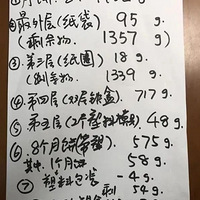 ②最外层(纸袋) 95 g.
(剩余物. 1357 g)
③第三层(纸圈) 18 g.
(剩余物. 1339 g.
④第四层(双层铁盒). 717 g.
⑤第五层(2个塑料 48 g.
⑥8个月饼(带塑) 575 g.
其中.1个月饼 58 g.
⑦塑料包装 -4 g.
剩 54 g.